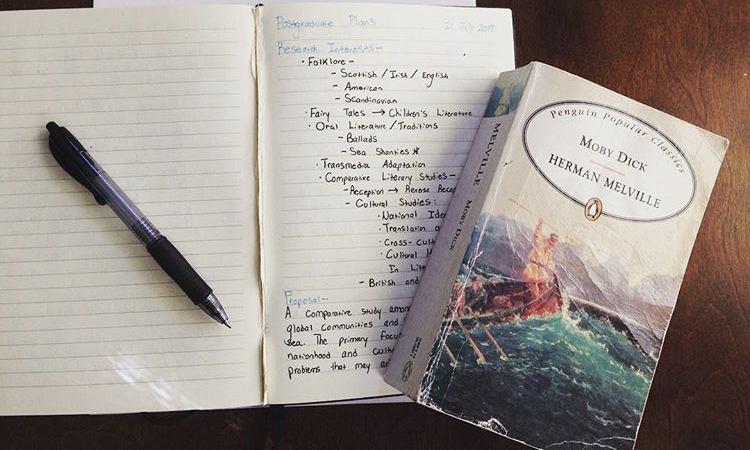 Postgraduate Plans
21 July 2017
Research Interests-
· Folklore -
- Scottish / Irish / English
- American
- Scandinavian
· Fairy Tales → Children's Literature
· Oral Literature / Traditions
- Ballads
- Sea Shanties *
· Transmedia Adaptation
· Comparative Literary Studies -
- Reception → Reverse Recep
- Cultural Studies:
· National Iden
· Translation a
· Cross-cult
· Cultural
In Lite
- British and
Proposal-
A comparative study amon
global communities and
sea. The primary focu
nationhood and cult
problems that may ar
MELVILLE MOBY DICK
Penguin Popular Classics
MOBY DICK
HERMAN MELVILLE